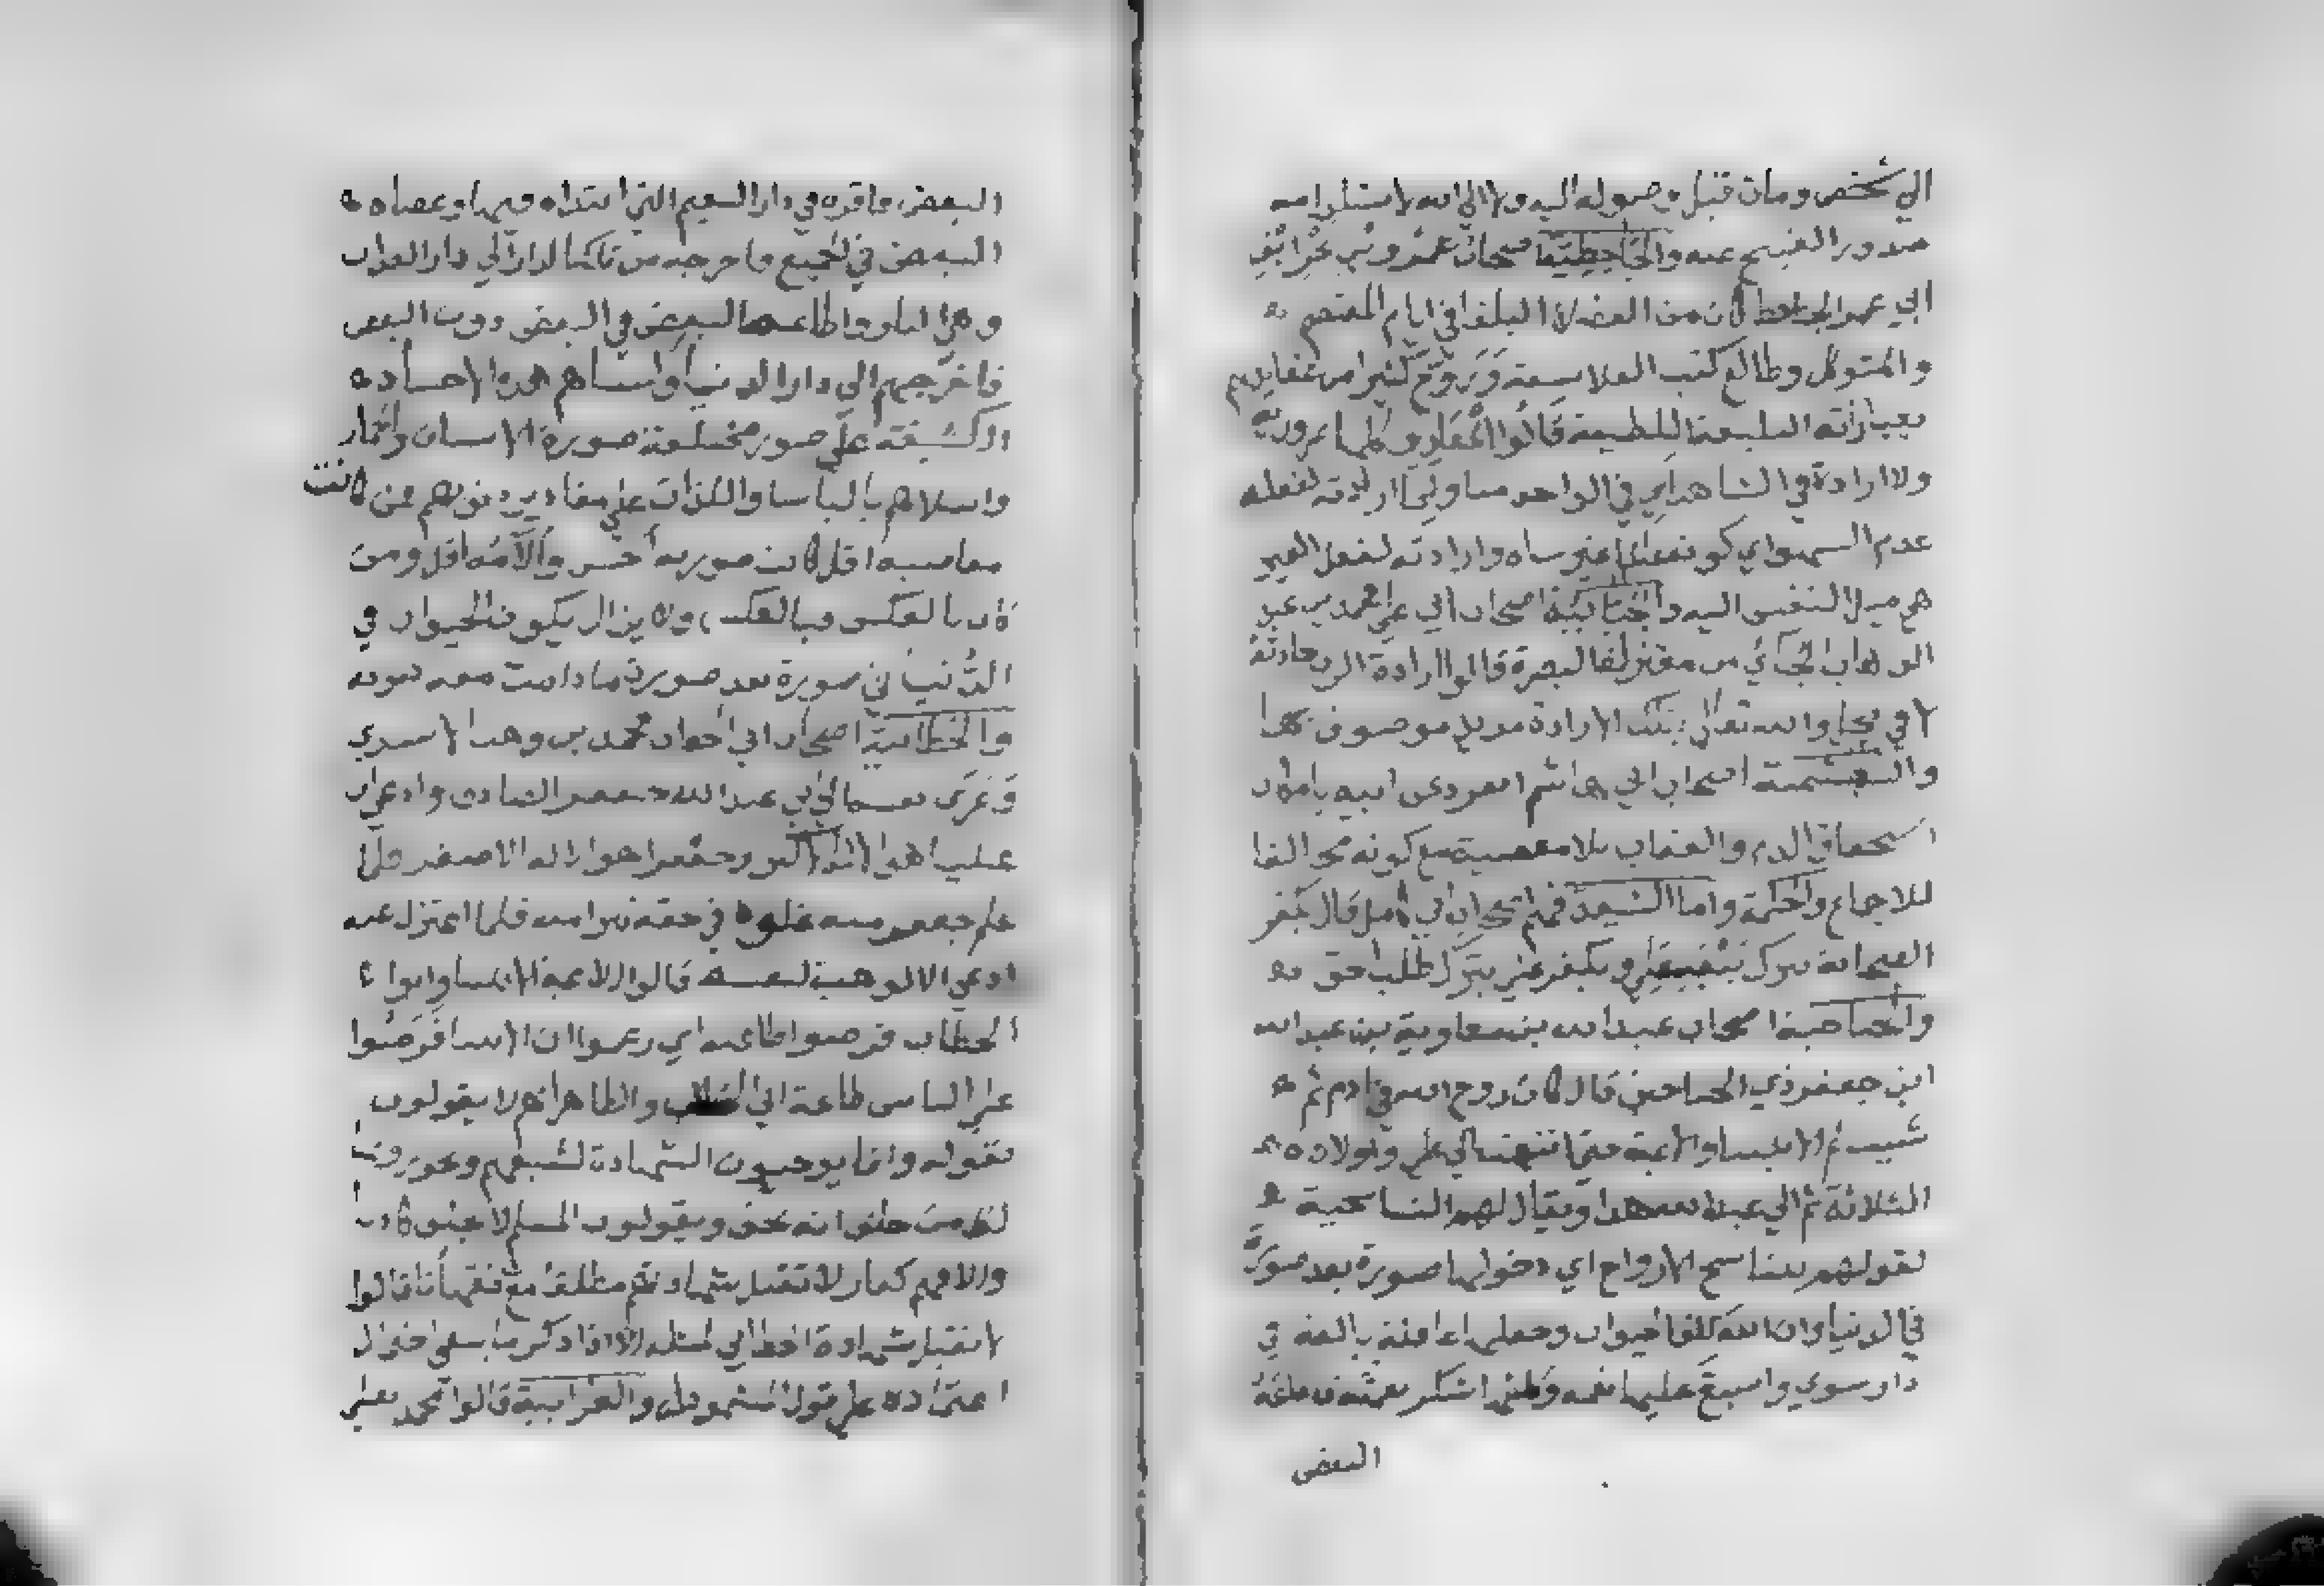 الي شخص ومات قبل وصوله اليه ولا الي الله لاستلزامه
صدور القبيح عنه والجاحظية اصحاب عمرو بن بحر
ابي عمرو الجاحظ كان من الفضلا البلغا في ايام المعتصم
والمتوكل وطالع كتب الفلاسفة وروج كثيرا من عقايدهم
بعباراته البليغة اللطيفة قالوا المعارف كلها ضرورية
ولا ارادة في الشاهد اي في الواحد منا وانما ارادته لفعله
عدم السهو اي كونه عالما غير ساه وارادته لفعل الغير
هي ميل النفس اليه والجبائية اصحاب ابي علي محمد بن عبد
الوهاب الجبائي من معتزلة البصرة قالوا ارادة الرب حادثة
لا في محل والله تعالى بتلك الارادة مريد موصوف بها
والبهشمية اصحاب ابي هاشم انفرد عن ابيه بامكان
استحقاق الذم والعقاب بلا معصية مع كونه مخالفا
للاجماع والحكمة واما الشيعة فمنهم اصحاب ابي كامل قال بكفر
الصحابة بترك بيعة علي وبكفر علي بترك طلب الحق
والجناحية اصحاب عبد الله بن معاوية بن عبد الله
ابن جعفر ذي الجناحين قال كان روح الله في ادم ثم
شيث ثم الانبيا والايمة حتى انتهت الي علي واولاده
الثلاثة ثم الي عبد الله هذا ويقال لهم التناسخية
لقولهم بتناسخ الارواح اي دخولها صورة بعد صورة
في الدنيا وان الله خلق الحيوان وجعلهم بالغة في
دار سوي واسبغ عليهم نعمه
البعض
البعض فاقره في دار النعيم التي ابتداه فيها وعصاه
البعض في الجميع فاخرجه من تلك الدار الي دار العذاب
وهي النار واطاعه البعض في البعض دون البعض
فاخرجهم الي دار الدنيا والبسهم هذه الاجساد
الكثيفة علي صور مختلفة صورة الانسان
وابتلاهم بالباسا واللذات علي مقادير ذنوبهم فمن كانت
معاصيه اقل كانت صورته احسن والامه اقل ومن
كان بالعكس فبالعكس ولا يزال يكون الحيوان في
الدنيا في صورة بعد صورة ما دامت معه ذنوبه
والخطابية اصحاب ابي الخطاب محمد بن وهب الاسدي
وعزى نفسه الي ابي عبد الله جعفر الصادق وادعي ان
عليا هو الاله الاكبر وجعفرا هو الاله الاصغر فلما
علم جعفر منه غلوه في حقه تبرا منه فلما اعتزل عنه
ادعي الالوهية لنفسه قالوا الايمة الانبيا وابوا
الخطاب فرضوا طاعته اي زعموا ان الانبيا فرضوا
علي الناس طاعة ابي الخطاب والظاهر انهم لا يقولون
بقوله وانما يوجبون الشهادة لشيعتهم
لظ من حلف انه محق ويقولون المسلم لا يحلف كاذبا
والاصح كفار لا تقبل شهادتهم مطلقا
لا تقبل شهادة الخطابي لمثله الا اذا ذكر ما ينفي احتمال
اعتماده علي قول المشهود له والغرابية قالوا محمد بعلي